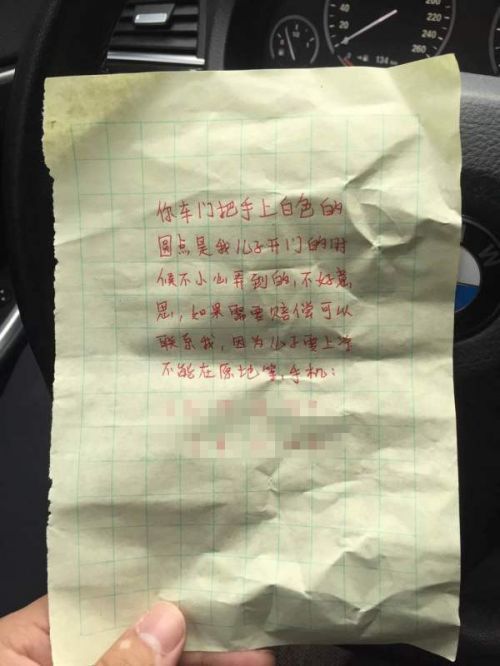 40
20
220
240
260
134
你车门把手上白色的
圆点是我儿子开门的时
候不小心弄到的,不好意
思,如果需要赔偿可以
联系我,因为儿子要上学
不能在原地等,手机: